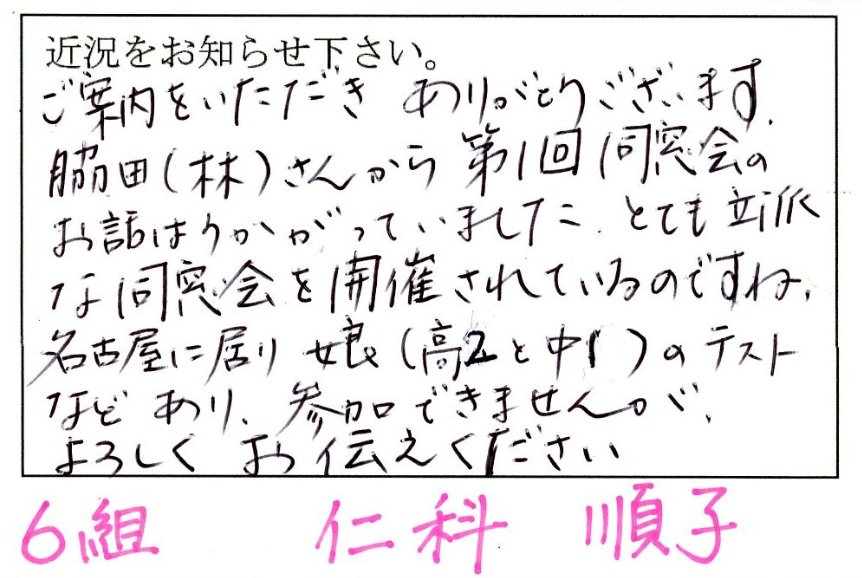 近況をお知らせ下さい。
ご案内をいただき ありがとうございます.
脇田(林)さんから 第1回同窓会の
お話はうかがっていました. とても立派
な同窓会を開催されているのですね.
名古屋に居り 娘(高2と中1)のテスト
などあり、参加できませんが、
よろしく お伝えください
6組 仁科 順子